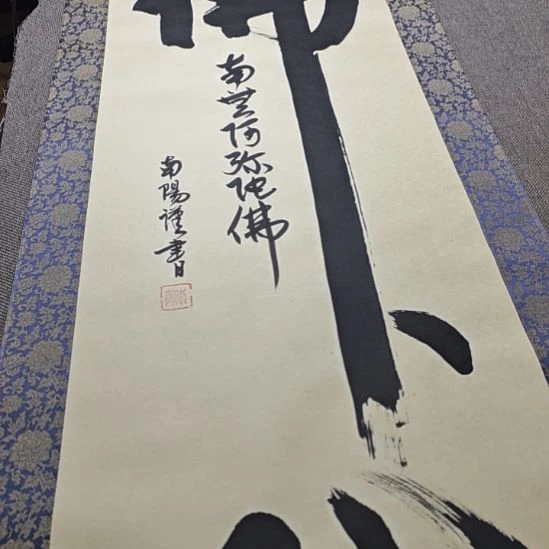 佛心
南無阿弥陀佛
南陽謹書